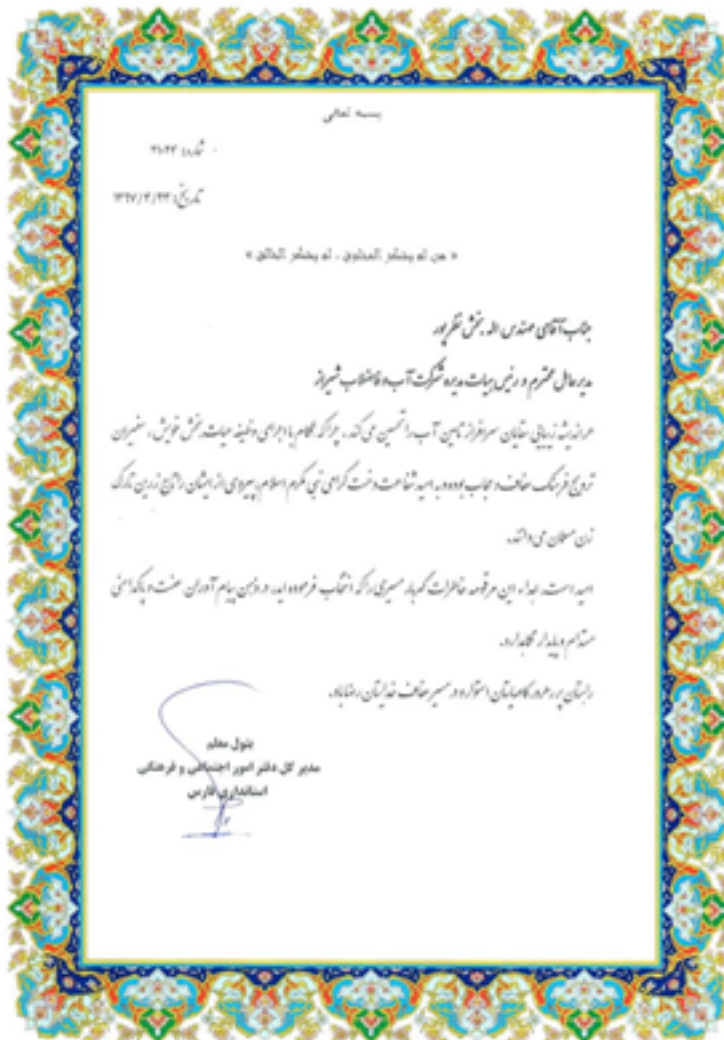 بسمه تعالی
شماره: ۳۱۰۲۳
تاریخ: ۱۳۹۷/۳/۲۳
« من لم یشکر المخلوق ، لم یشکر الخالق »
جناب آقای مهندس اله بخش نظرپور
مدیرعامل محترم و رئیس هیات مدیره شرکت آب و فاضلاب شیراز
زیبایی سقایان سرافراز تامین آب را تحسین می کند. چرا که با اجرای وظیفه حیات بخش خویش، سفیران
ترویج فرهنگ عفاف و حجاب بوده و به امید شفاعت دخت گرامی نبی مکرم اسلام، پیروی از ایشان را تاج زرین تارک
زن مسلمان می دانند.
امید است این مرقومه خاطرات گهربار مسیری را که انتخاب فرموده اید، در پیام آوران عفت و پاکدامنی
مستدام و پایدار نگهدارد.
استوار در مسیر عفاف
بتول معلم
مدیر کل دفتر امور اجتماعی و فرهنگی
استانداری فارس